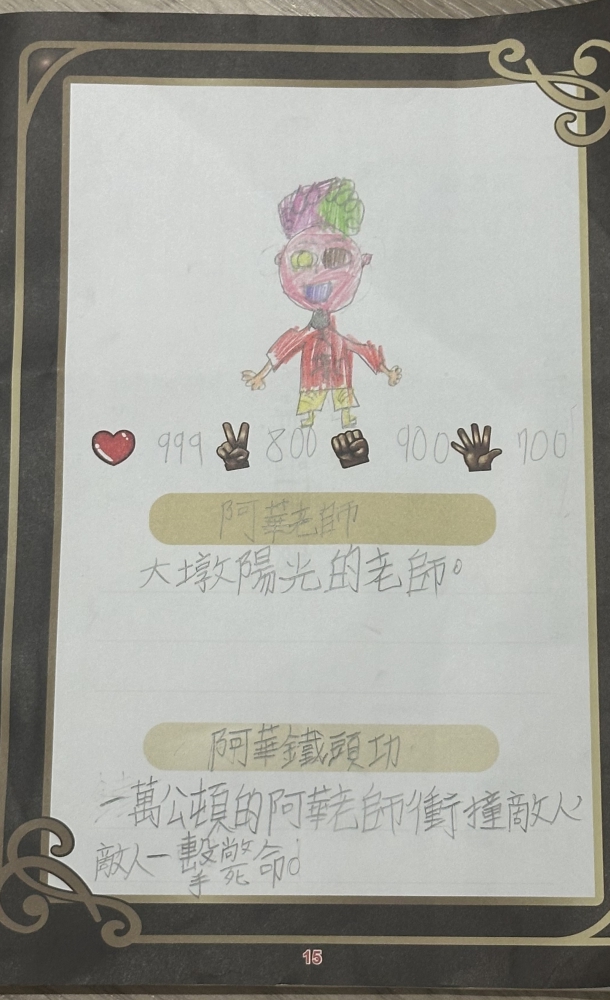 999 800 900 700
阿華老師
大墩陽光的老師。
阿華鐵頭功
一萬公頓的阿華老師衝撞敵人,
敵人一擊斃命。
15